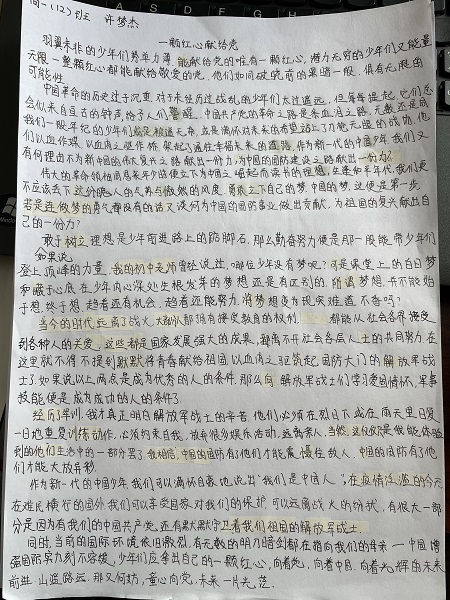 高一(12)班 许梦杰
一颗红心献给党
羽翼未非的少年们势单力薄,能献给党的唯有一颗红心,潜力无穷的少年们又能量
无限,一整颗红心都能献给敬爱的党,他们如同破晓前的黑暗一般,俱有无限的
可能性。
中国革命的历史过于沉重,对于未经历过战乱的少年们太过遥远,但每每提起,它们总
会似来自亘古的钟声,给予人们警醒。中国共产党的革命之路是朱血洒之路,无数还是同
我们一般年纪的少年们踮起稚嫩无,或是满怀对未来的希望踏上了万能无服的战场,他
们以血作碟,以血消之躯作桥,架起了通往幸福未来的道路,作为新一代的中国少年,我们又
有何理由不为新中国的伟大复兴之路献出一份力,为中国的国防建设之路献出一份力?
伟大的革命领袖周恩来年少时便立下为中国之崛起而读书的理想,在建如年华代,我们更
不应该丢下这份晚人的气势与傲然的风度,勇敢立下自己的梦,中国的梦,这便是第一步,
若是连做梦的勇气都没有的话又谈何为中国的国防事业做出贡献,为祖国的复兴献出自
己的一份力?
敢于树立理想是少年前进路上的踮脚石,那么勤奋努力便是那一股能带少年们
登上顶峰的力量。如果说我的初中老师曾经说过,"哪位少年没有梦呢?可是课堂上的白日梦
和藏于心底在少年内心深处生根发芽的梦想还是有区别的,所谓梦想,并不能始
于想,终于想,趁着还有机会,趁着还能努力,将梦想变为现实难道不香吗?"
当今的时代,远离了战火,大部分都拥有接受教育的权利,都能从社会各界接受
到各种人的关爱,这些都是国家发展强大的成果,都离不开社会各层人士的共同努力,在
这里就不得不提到默默将青春献给祖国,以血消之驱筑起国防大门的解放军战
士了,如果说以上两点是成为优秀的人的条件,那么向解放军战士们学习爱国情怀,军事
技能便是成为成功的人的条件了。
经历了军训,我才真正明白解放军战士的辛苦,他们必须在烈日下或在雨天里日复
一日地重复训练动作,必须约束自我,放弃很多娱乐活动,远离亲人,当然,这仅仅是我能体验
到的他们生活中的一部分罢了,我相信,中国的国防有了他们才能震慑住敌人,中国的国防有了他
们才能大放异彩。
作为新一代的中国少年,我们可以满怀自豪地说出"我们是中国人",在疫情泛滥的今天
在难民横行的国外,我们可以享受国家对我们的保护,可以远离战火的纷扰,有很大一部
分是因为有我们的中国共产党,还有默默守卫着我们祖国的解放军战士。
同时,当前的国际环境依旧激烈,有无数的明刀暗剑都在指向我们的母亲——中国,增
强国防实力刻不容缓,少年们应拿出自己的一颗红心,向着党,向着中国,向着光辉的未来
前进,山遥路远,那又何妨,童心向党,未来一片光茫。